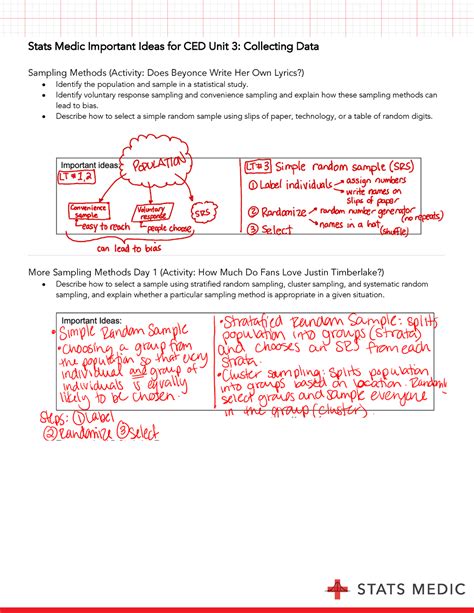 Stats Medic Important Ideas for CED Unit 3: Collecting Data
Sampling Methods (Activity: Does Beyonce Write Her Own Lyrics?)
• Identify the population and sample in a statistical study.
• Identify voluntary response sampling and convenience sampling and explain how these sampling methods can
lead to bias.
• Describe how to select a simple random sample using slips of paper, technology, or a table of random digits.
Important ideas:
LT #1,2
POPULATION
Convenience
sample
Voluntary
response
SRS
easy to reach
people choose
can lead to bias
LT #3 Simple random sample (SRS)
① Label individuals → assign numbers
→ write names on
slips of paper
② Randomize → random number generator
(no repeats)
③ Select → names in a hat
(shuffle)
More Sampling Methods Day 1 (Activity: How Much Do Fans Love Justin Timberlake?)
• Describe how to select a sample using stratified random sampling, cluster sampling, and systematic random
sampling, and explain whether a particular sampling method is appropriate in a given situation.
Important Ideas:
• Simple Random Sample
• Choosing a group from
the population so that every
individual and group of
individuals is equally
likely to be chosen.
Steps: ① Label
② randomize ③ select
• Stratified Random Sample: splits
population into groups (strata)
and chooses an SRS from each
strata.
• Cluster sampling: splits population
into groups based on location. Randomly
select groups and sample everyone
in the group (cluster).
STATS MEDIC